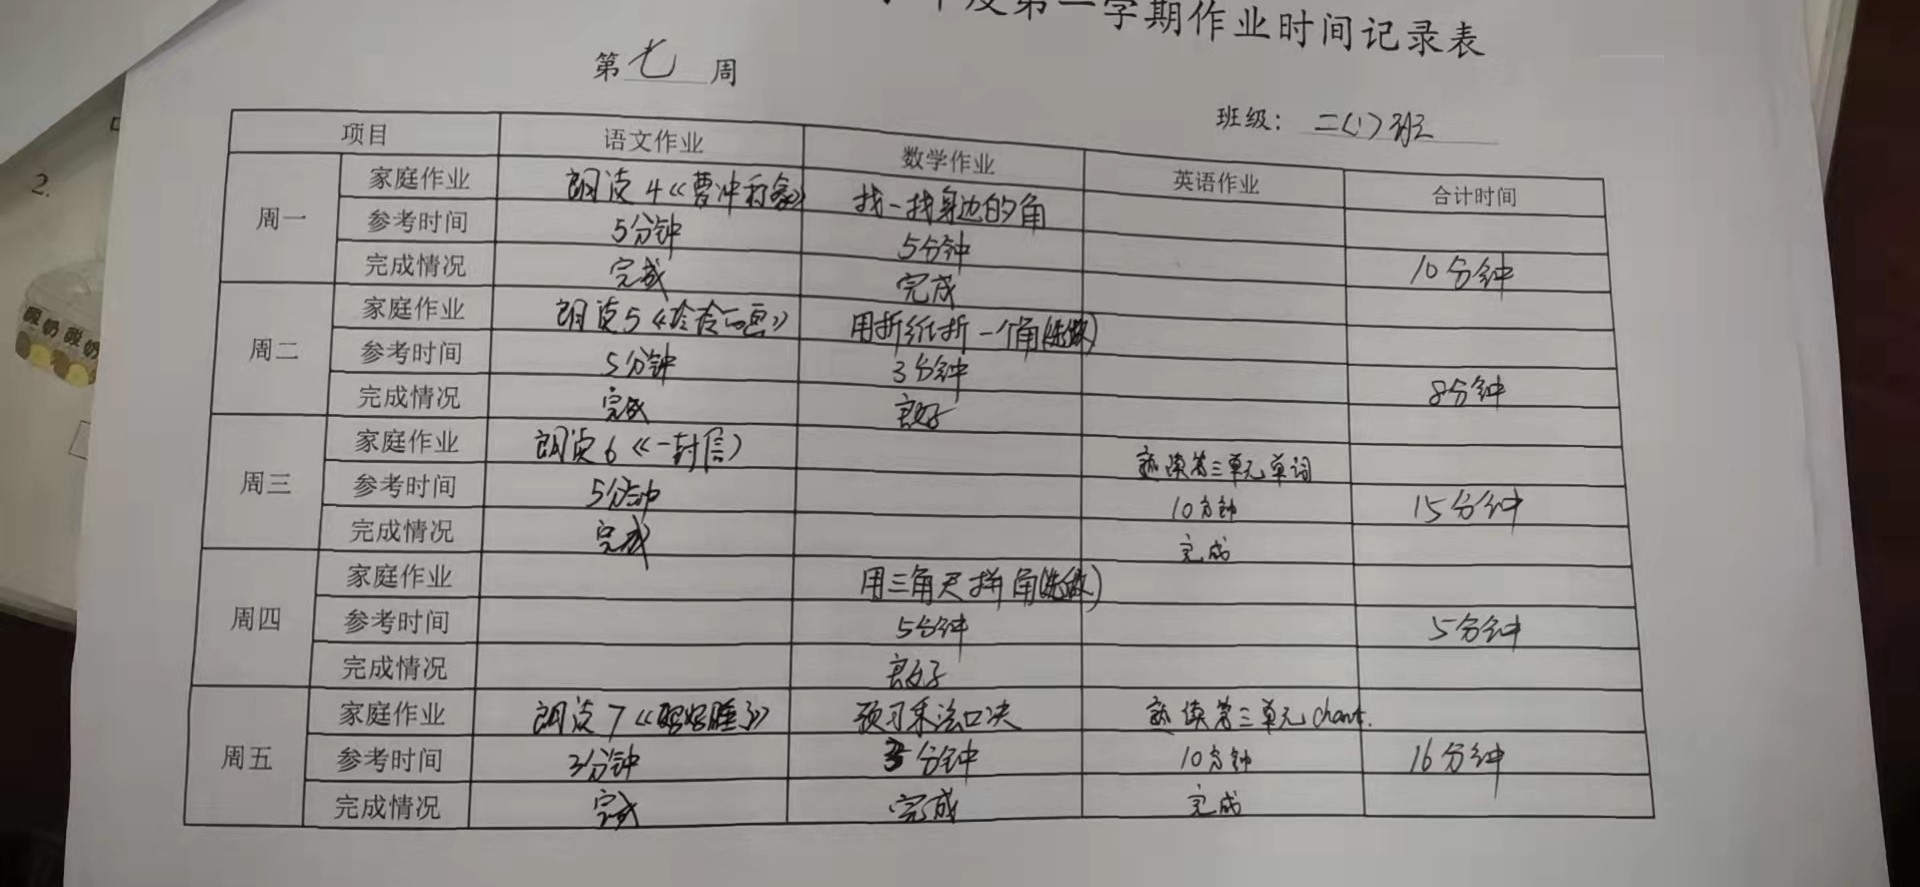 年度第一学期作业时间记录表
第七周
班级：二(1)班
项目 语文作业 数学作业 英语作业 合计时间
周一 家庭作业 朗读4《曹冲称象》 找一找身边的角
参考时间 5分钟 5分钟
完成情况 完成 完成 10分钟
周二 家庭作业 朗读5《玲玲的画》 用折纸折一个角(选做)
参考时间 5分钟 3分钟
完成情况 完成 良好 8分钟
周三 家庭作业 朗读6《一封信》 熟读第三单元单词
参考时间 5分钟 10分钟 15分钟
完成情况 完成 完成
周四 家庭作业 用三角尺拼角(选做)
参考时间 5分钟 5分钟
完成情况 良好
周五 家庭作业 朗读7《妈妈睡了》 预习乘法口决 熟读第三单元chant.
参考时间 3分钟 3分钟 10分钟 16分钟
完成情况 完成 完成 完成
2.
酸奶酸奶